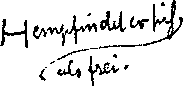 empfindet er sich
als frei.